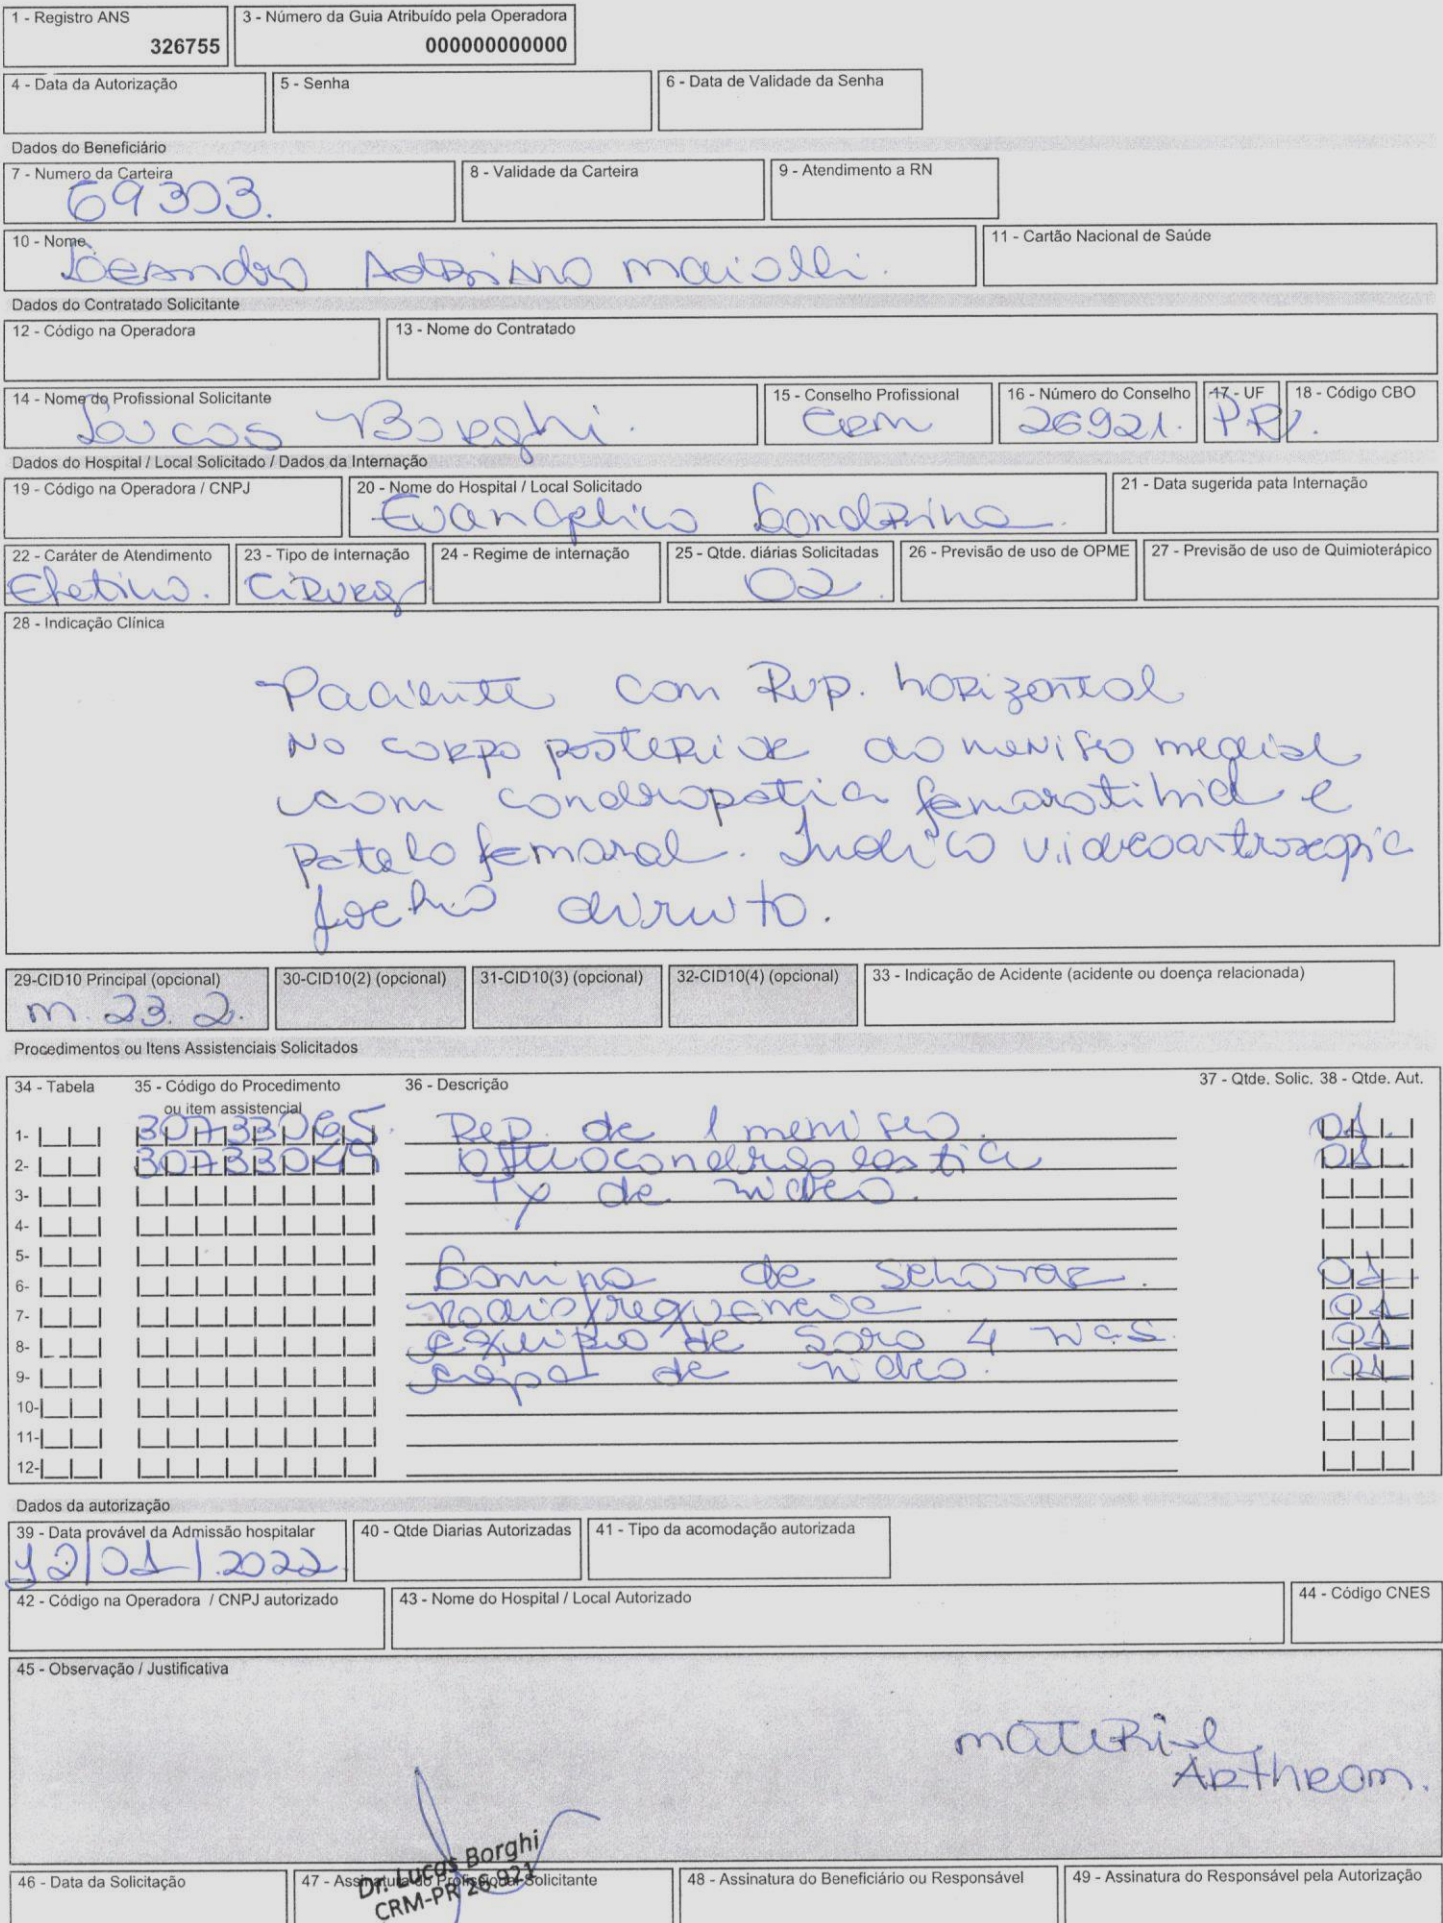 1 - Registro ANS 3 - Número da Guia Atribuído pela Operadora
326755 000000000000
4 - Data da Autorização 5 - Senha 6 - Data de Validade da Senha
Dados do Beneficiário
7 - Numero da Carteira 8 - Validade da Carteira 9 - Atendimento a RN
69303.
10 - Nome 11 - Cartão Nacional de Saúde
Leandro Adriano maiolli.
Dados do Contratado Solicitante
12 - Código na Operadora 13 - Nome do Contratado
14 - Nome do Profissional Solicitante 15 - Conselho Profissional 16 - Número do Conselho 17 - UF 18 - Código CBO
Lucas Borghi. CRM 26921. PR.
Dados do Hospital / Local Solicitado / Dados da Internação
19 - Código na Operadora / CNPJ 20 - Nome do Hospital / Local Solicitado 21 - Data sugerida pata Internação
Evangelico Londrina.
22 - Caráter de Atendimento 23 - Tipo de Internação 24 - Regime de internação 25 - Qtde. diárias Solicitadas 26 - Previsão de uso de OPME 27 - Previsão de uso de Quimioterápico
Eletivo. Cirurg 02.
28 - Indicação Clínica
Paciente com Rup. horizontal
No corpo posterior do menisco medial
com condropatia femorotibial e
patelo femoral. Indico videoartroscopia
joelho direito.
29-CID10 Principal (opcional) 30-CID10(2) (opcional) 31-CID10(3) (opcional) 32-CID10(4) (opcional) 33 - Indicação de Acidente (acidente ou doença relacionada)
m. 23. 2.
Procedimentos ou Itens Assistenciais Solicitados
34 - Tabela 35 - Código do Procedimento 36 - Descrição 37 - Qtde. Solic. 38 - Qtde. Aut.
ou item assistencial
1- 30733065. Rep. de 1 menisco. 01.
2- 30733049 osteocondroplastia 01
3- Tx de video.
4-
5-
6- Lamina de Shaver. 01
7- radiofrequencia 01
8- equipo de soro 4 vias. 01
9- capa de video. 01
10-
11-
12-
Dados da autorização
39 - Data provável da Admissão hospitalar 40 - Qtde Diarias Autorizadas 41 - Tipo da acomodação autorizada
12/01/2022
42 - Código na Operadora / CNPJ autorizado 43 - Nome do Hospital / Local Autorizado 44 - Código CNES
45 - Observação / Justificativa
material
Arthrom.
Dr. Lucas Borghi
CRM-PR 26.921
46 - Data da Solicitação 47 - Assinatura do Profissional Solicitante 48 - Assinatura do Beneficiário ou Responsável 49 - Assinatura do Responsável pela Autorização